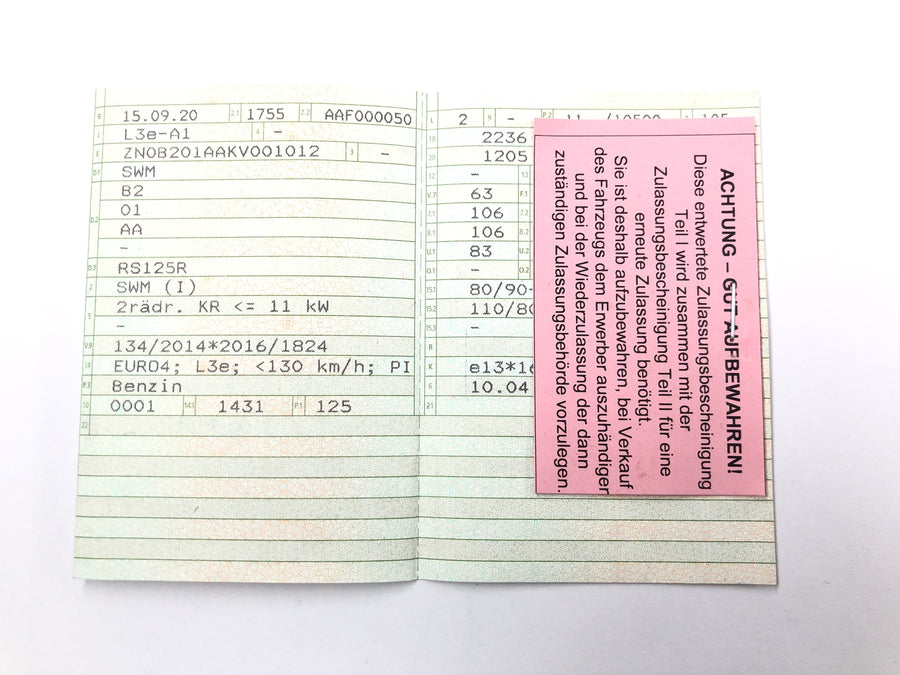 B 15.09.20 2.1 1755 2.2 AAF000050
J L3e-A1 4 –
E ZN0B201AAKV001012 3 –
D.1 SWM
B2
D.2 01
AA
–
D.3 RS125R
2 SWM (I)
5 2rädr. KR <= 11 kW
–
V.9 134/2014*2016/1824
14 EURO4; L3e; <130 km/h; PI
P.3 Benzin
10 0001 14.1 1431 P.1 125
22
L 2 9 – P.2
18 2236
20 1205
12 – 13
V.7 63 F.1
7.1 106
8.1 106 8.2
U.1 83 U.2
O.1 – O.2
15.1 80/90-
15.2 110/80
15.3 –
R
K e13*16
6 10.04
21
ACHTUNG – GUT AUFBEWAHREN!
Diese entwertete Zulassungsbescheinigung
Teil I wird zusammen mit der
Zulassungsbescheinigung Teil II für eine
erneute Zulassung benötigt.
Sie ist deshalb aufzubewahren, bei Verkauf
des Fahrzeugs dem Erwerber auszuhändigen
und bei der Wiederzulassung der dann
zuständigen Zulassungsbehörde vorzulegen.